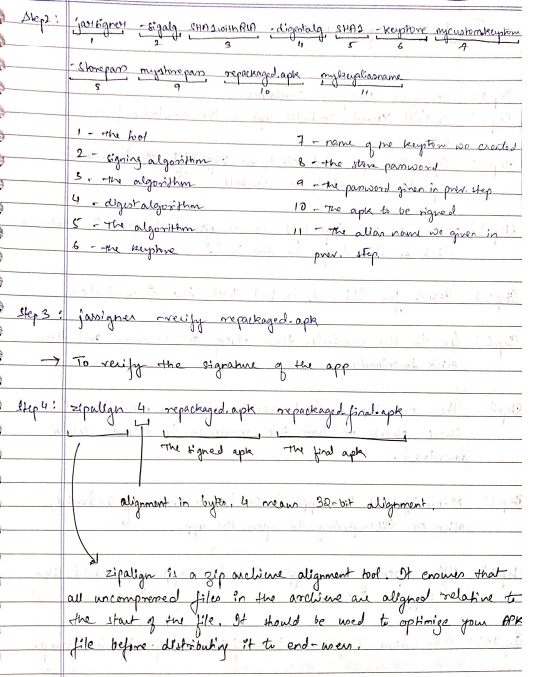 Step2: jarsigner -sigalg SHA1withRSA -digestalg SHA1 -keystore mycustom.keystore
1 2 3 4 5 6 7
-storepass mystorepass repackaged.apk mykeyaliasname
8 9 10 11
1 - the tool
2 - signing algorithm
3 - the algorithm
4 - digest algorithm
5 - The algorithm
6 - the keystore
7 - name of the keystore we created
8 - the store password
9 - the password given in prev. step
10 - The apk to be signed
11 - the alias name we given in
prev. step.
Step 3: jarsigner -verify repackaged.apk
→ To verify the signature of the app
Step 4: zipalign 4 repackaged.apk repackaged_final.apk
The signed apk The final apk
alignment in bytes. 4 means 32-bit alignment.
zipalign is a zip archieve alignment tool. It ensures that
all uncompressed files in the archieve are aligned relative to
the start of the file. It should be used to optimize your APK
file before distributing it to end-users.